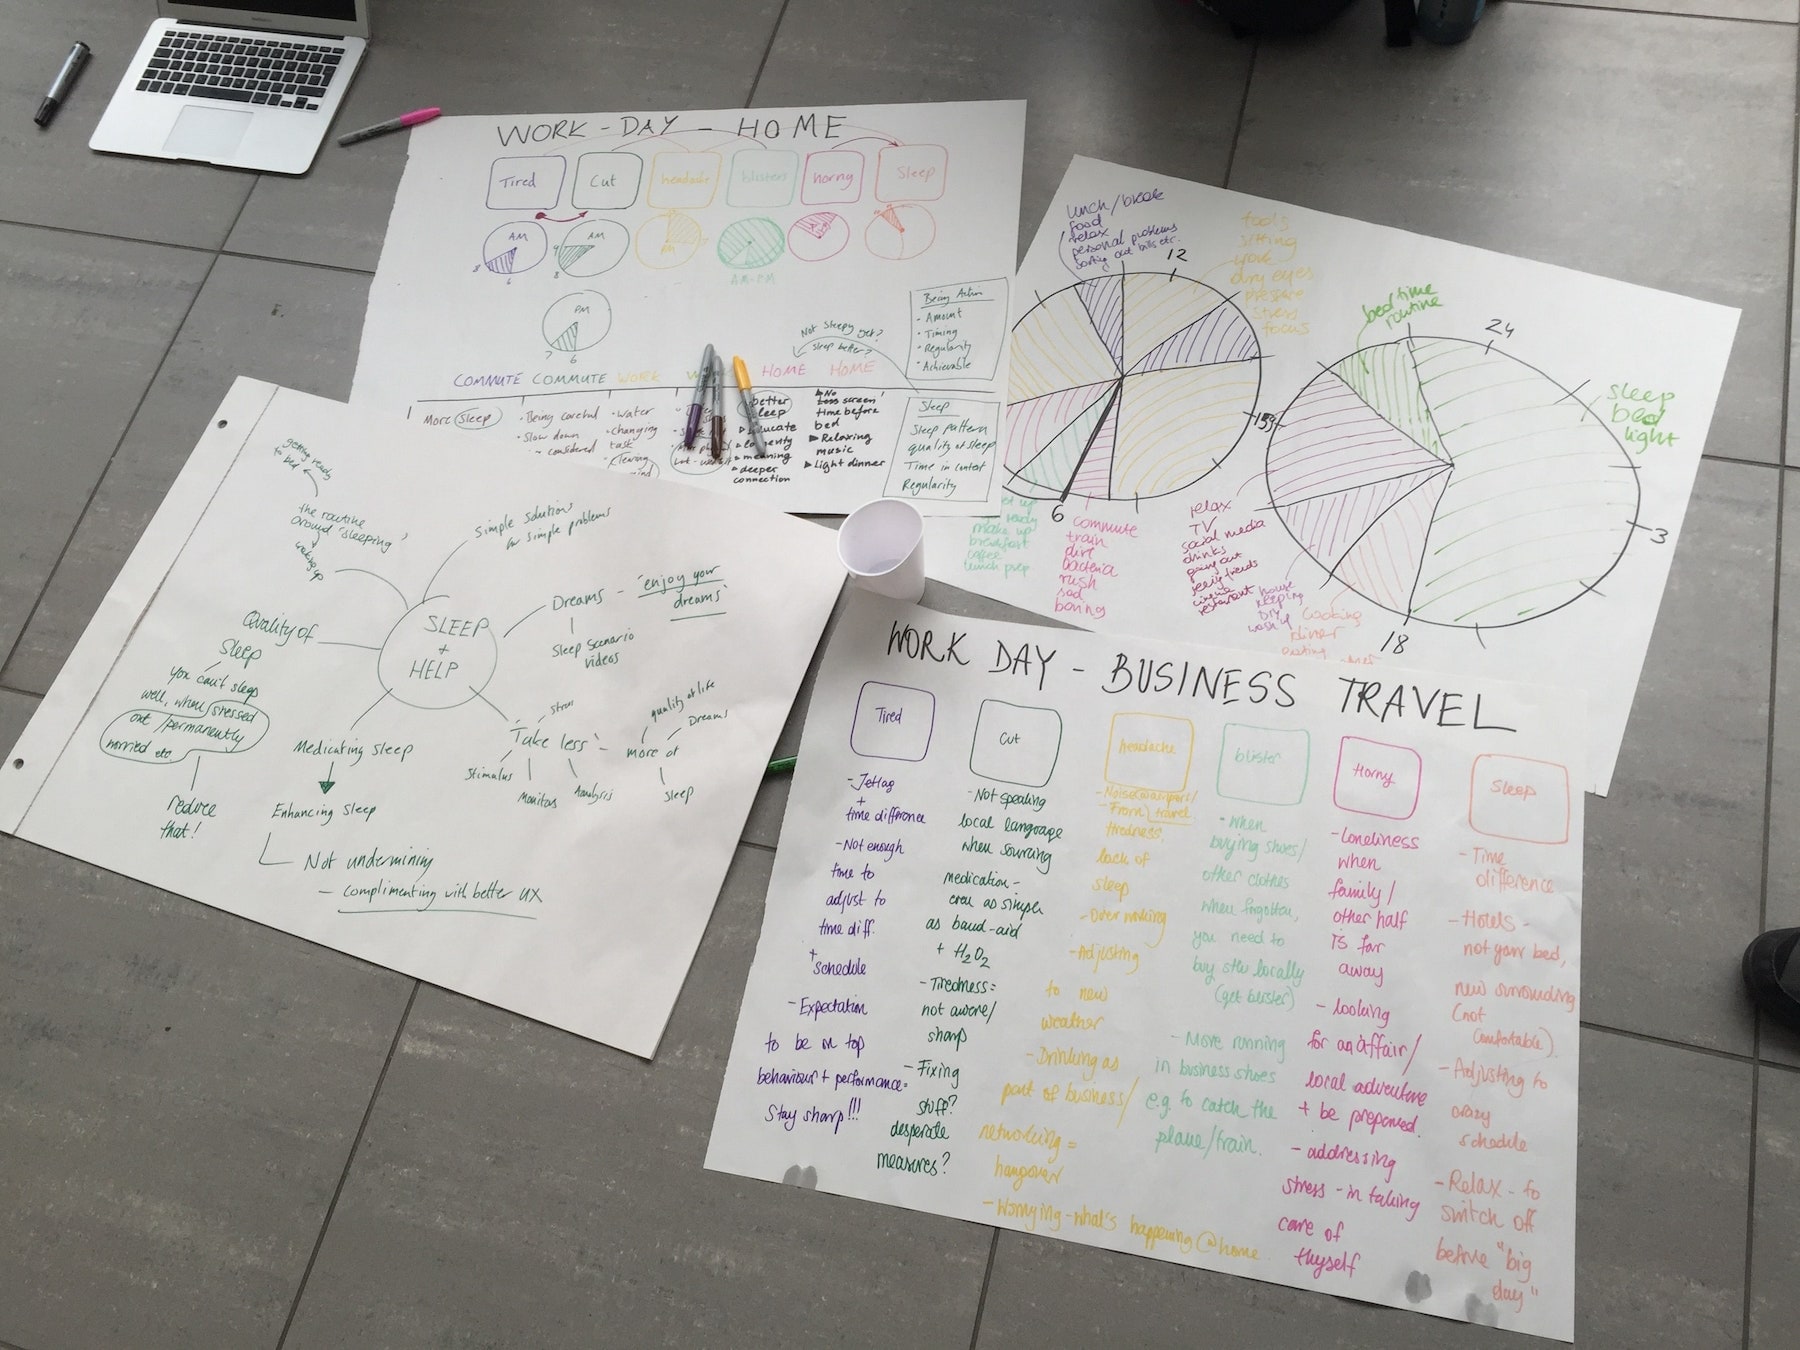 WORK - DAY - HOME
Tired
Cut
headache
blisters
horny
Sleep
AM
8
6
AM
9
8
AM
AM-PM
PM
7
6
Being Action
- Amount
- Timing
- Regularity
- Achievable
Not sleepy yet?
Sleep better?
COMMUTE
COMMUTE
WORK
HOME
HOME
More Sleep
- Being careful
- Slow down
considered
- Water
- changing
task
- Clearing
better
sleep
Educate
meaning
deeper
connection
No
Less screen
time before
bed
Relaxing
music
Light dinner
Sleep
Sleep pattern
quality of sleep
Time in context
Regularity
lunch/break
food
relax
personal problems
sorting out bills etc.
12
tools
sitting
work
dry eyes
pressure
stress
focus
15
6
ready
make up
breakfast
coffee
lunch prep
commute
train
dirt
bacteria
rush
sad
boring
bed time
routine
24
sleep
bed
light
3
18
relax
TV
social media
drinks
going out
seeing friends
cinema
restaurant
house
keeping
DIY
wash up
cooking
dinner
getting ready
to bed
the routine
around 'sleeping'
waking up
Simple solutions
for simple problems
SLEEP
+
HELP
Dreams - 'enjoy your
dreams'
Sleep Scenario
videos
Quality of
Sleep
you can't sleep
well, when stressed
out / permanently
worried etc.
reduce
that!
Medicating sleep
Enhancing sleep
Not undermining
- Complimenting with better UX
'Take less' -
stress
Stimulus
Monitors
Analysis
more of
quality of life
Dreams
sleep
WORK DAY - BUSINESS TRAVEL
Tired
- Jetlag
+
time difference
- Not enough
time to
adjust to
time diff.
+
schedule
- Expectation
to be on top
behaviour + performance =
Stay sharp!!!
Cut
- Not speaking
local language
when sourcing
medication -
even as simple
as band-aid
+ H2O2
- Tiredness =
not aware/
sharp
- Fixing
stuff?
desperate
measures?
headache
- Noise @ airport/
- From travel
tiredness,
lack of
sleep
- Over working
- Adjusting
to new
weather
- Drinking as
part of business/
networking =
hangover
- Worrying - what's happening @ home.
blister
- When
buying shoes/
other clothes
when forgotten,
you need to
buy sth locally
(get blister)
- Move running
in business shoes
e.g. to catch the
plane/train.
Horny
- Loneliness
when
family/
other half
is far
away
- looking
for an affair/
local adventure
+ be prepared.
- addressing
stress - in taking
care of
thyself
Sleep
- Time
difference
- Hotels -
not your bed,
new surrounding
(not
comfortable).
- Adjusting to
crazy
schedule
- Relax - to
switch off
before "big
day"